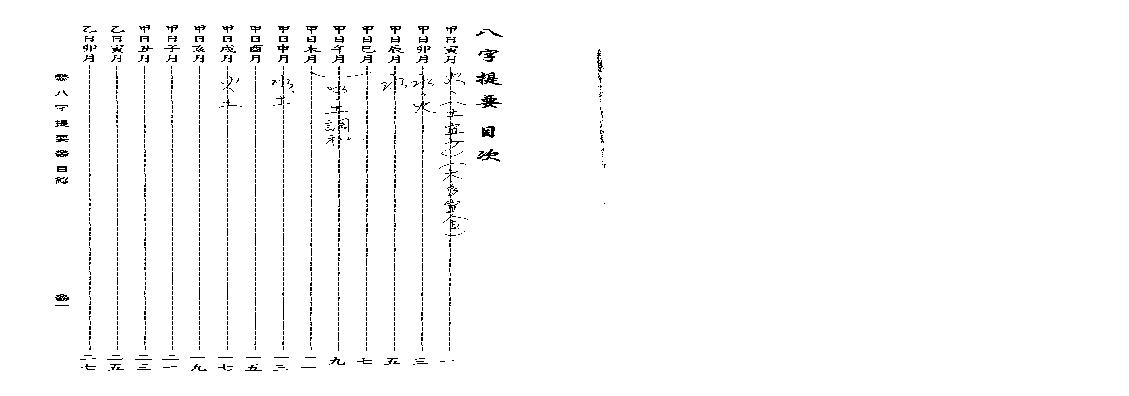 八字提要目次
甲日寅月 一
甲日卯月 三
甲日辰月 五
甲日巳月 七
甲日午月 九
甲日未月 一一
甲日申月 一三
甲日酉月 一五
甲日戌月 一七
甲日亥月 一九
甲日子月 二一
甲日丑月 二三
乙日寅月 二五
乙日卯月 二七
水火
水
水土調和
水土
火土
八字提要 目錄
一